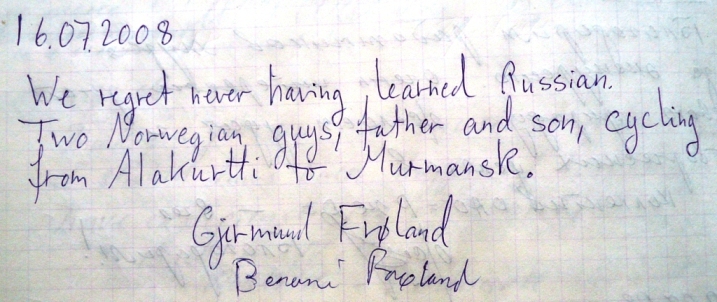 16.07.2008
We regret never having learned Russian.
Two Norwegian guys, father and son, cycling
from Alakurtti to Murmansk.
Gjermund Frøland